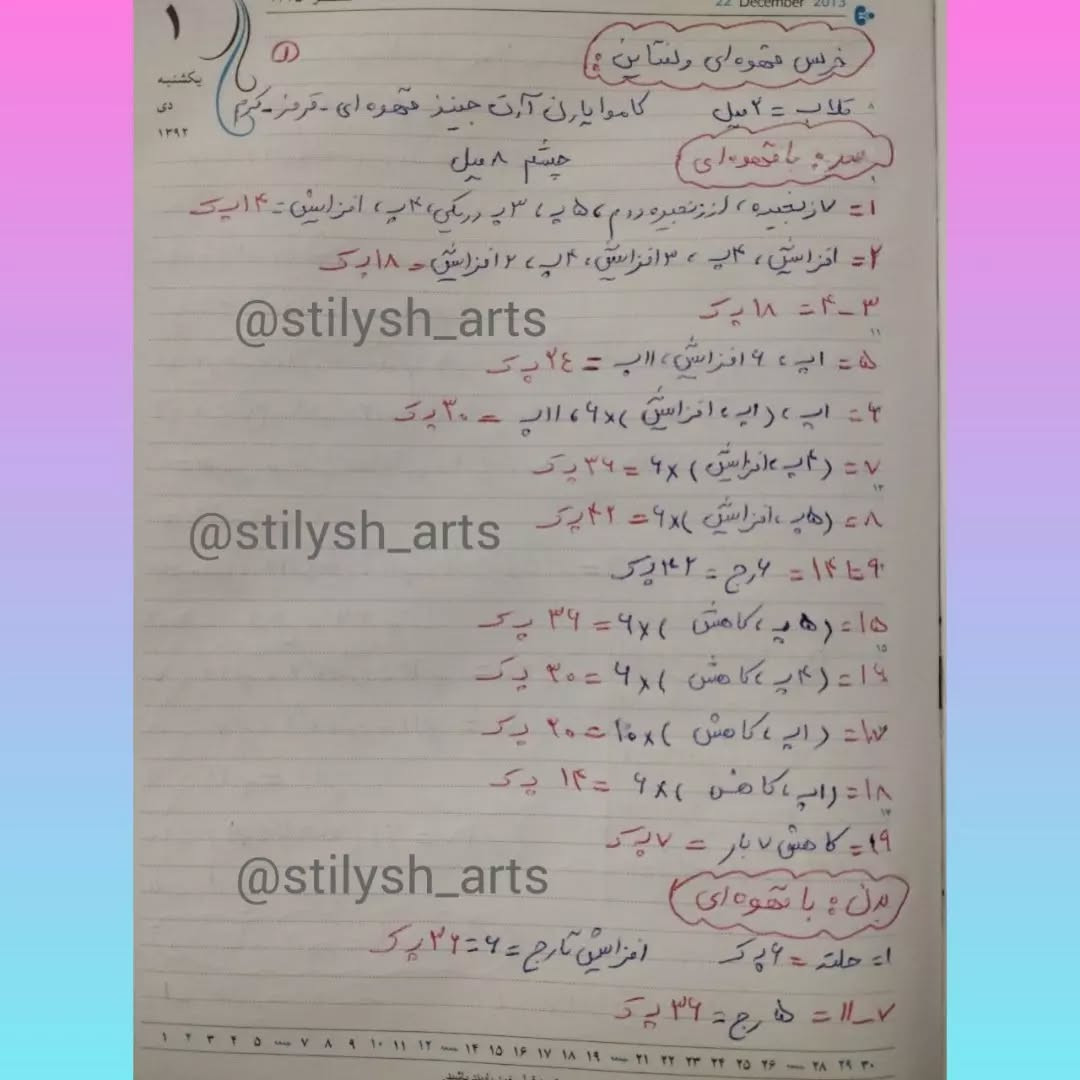 22 December 2013
۱
یکشنبه
دی
۱۳۹۲
۱
خرس قهوه‌ای ولنتاین:
قلاب = ۲ میل کاموا یارن آرت جینز قهوه‌ای-قرمز-کرم
سر: با قهوه‌ای چشم ۸ میل
۱= ۷ زنجیره، از زنجیره دوم، ۵پ، ۳پ در یکی، ۴پ، افزایش=۱۴پ ک
۲= افزایش، ۴پ، ۳ افزایش، ۴پ، ۲ افزایش=۱۸پ ک
۳-۴=۱۸پ ک
@stilysh_arts
۵= ۱پ، ۶ افزایش، ۱۱پ = ۲۴پ ک
۶= ۱پ، (۱پ، افزایش)×۶، ۱۱پ = ۳۰پ ک
۷= (۴پ، افزایش)×۶=۳۶پ ک
۸= (۵پ، افزایش)×۶=۴۲پ ک
@stilysh_arts
۹ تا ۱۴= ۶رج = ۴۲پ ک
۱۵= (۵پ، کاهش)×۶=۳۶ پ ک
۱۶= (۴پ، کاهش)×۶=۳۰ پ ک
۱۷= (۱پ، کاهش)×۱۰=۲۰ پ ک
۱۸= (۱پ، کاهش)×۶=۱۴ پ ک
۱۹= کاهش ۷ بار = ۷پ ک
@stilysh_arts
بدن: با قهوه‌ای
۱= حلقه = ۶پ ک افزایش تا رج = ۶=۳۶پ ک
۷-۱۱= ۵ رج = ۳۶پ ک
۱ ۲ ۳ ۴ ۵ ۷ ۸ ۹ ۱۰ ۱۱ ۱۲ ۱۴ ۱۵ ۱۶ ۱۷ ۱۸ ۱۹ ۲۱ ۲۲ ۲۳ ۲۴ ۲۵ ۲۶ ۲۸ ۲۹ ۳۰